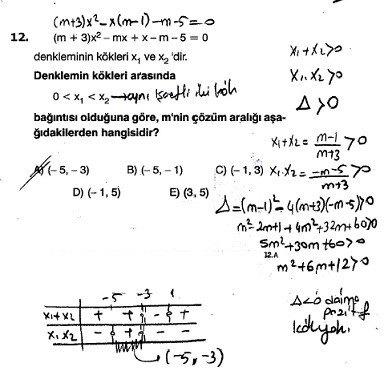 (m+3)x²-x(m-1)-m-5=0
12. (m + 3)x² – mx + x – m – 5 = 0
denkleminin kökleri x₁ ve x₂ 'dir.
Denklemin kökleri arasında
0 < x₁ < x₂ → aynı işaretli iki kök
bağıntısı olduğuna göre, m'nin çözüm aralığı aşa-
ğıdakilerden hangisidir?
A) (– 5, – 3) B) (– 5, – 1) C) (– 1, 3)
D) (– 1, 5) E) (3, 5)
x₁+x₂>0
x₁.x₂>0
Δ>0
x₁+x₂ = (m-1)/(m+3) >0
x₁.x₂ = (-m-5)/(m+3) >0
Δ=(m-1)²-4(m+3)(-m-5)>0
m²-2m+1+4m²+32m+60>0
5m²+30m+60>0
m²+6m+12>0
Δ<0 daima
pozitif
kök yok
-5 -3 1
x₁+x₂ + + - +
x₁x₂ - + - -
(-5,-3)